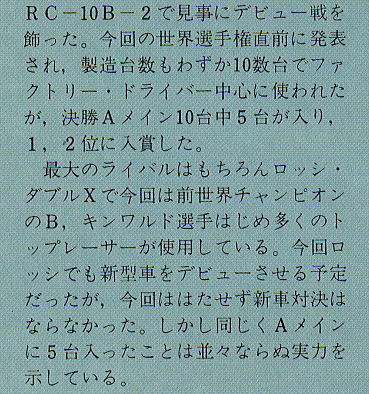 ＲＣ－10Ｂ－２で見事にデビュー戦を
飾った。今回の世界選手権直前に発表
され，製造台数もわずか10数台でファ
クトリー・ドライバー中心に使われた
が，決勝Ａメイン10台中５台が入り，
１，２位に入賞した。
　最大のライバルはもちろんロッシ・
ダブルＸで今回は前世界チャンピオン
のＢ，キンワルド選手はじめ多くのト
ップレーサーが使用している。今回ロ
ッシでも新型車をデビューさせる予定
だったが，今回ははたせず新車対決は
ならなかった。しかし同じくＡメイン
に５台入ったことは並々ならぬ実力を
示している。